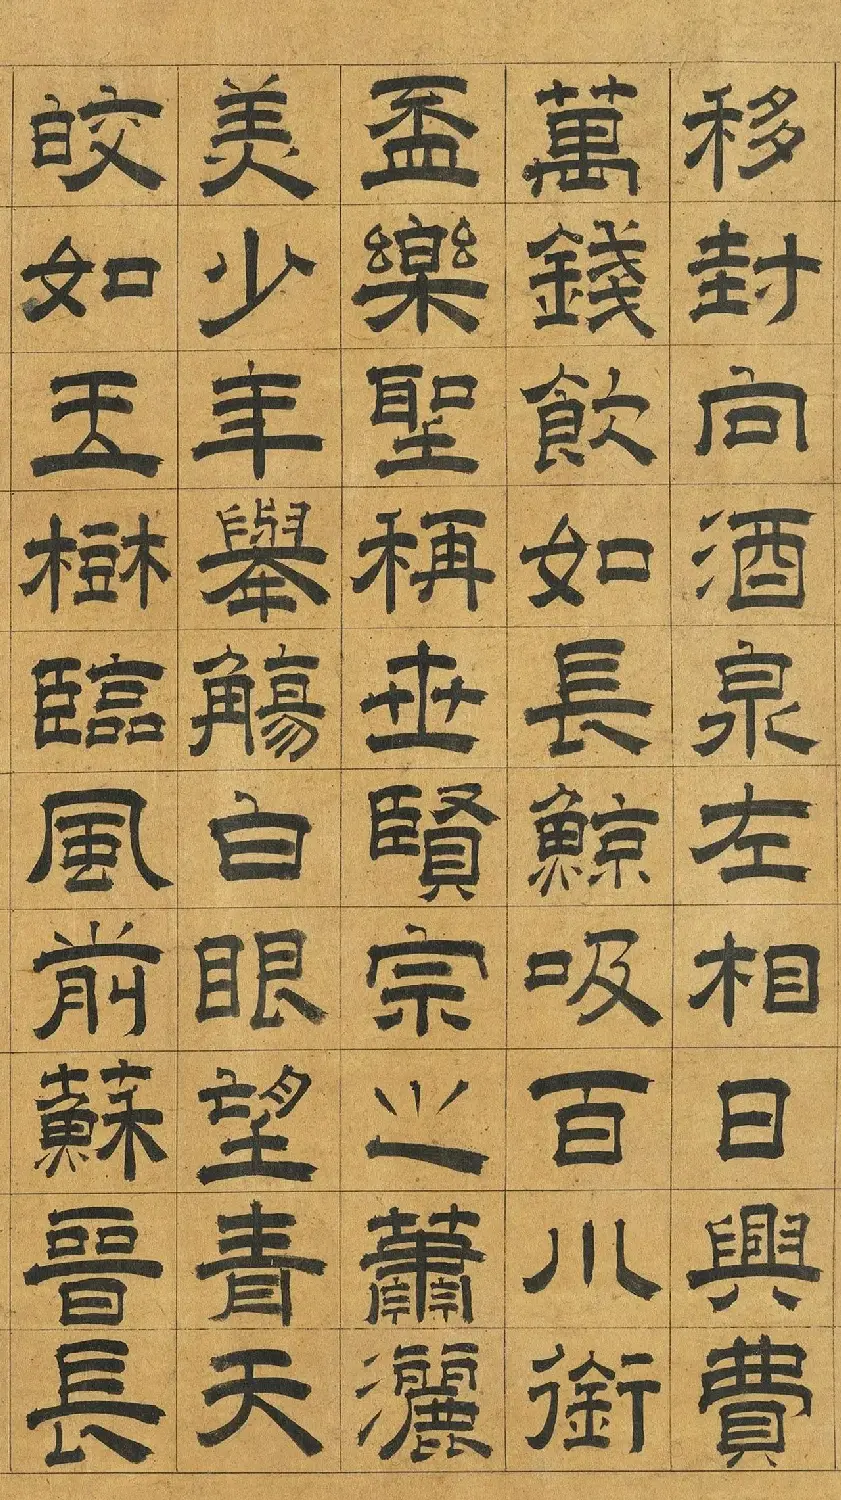 移封向酒泉左相日興費
萬錢飲如長鯨吸百川銜
盃樂聖稱世賢宗之蕭灑
美少年舉觴白眼望青天
皎如玉樹臨風前蘇晉長